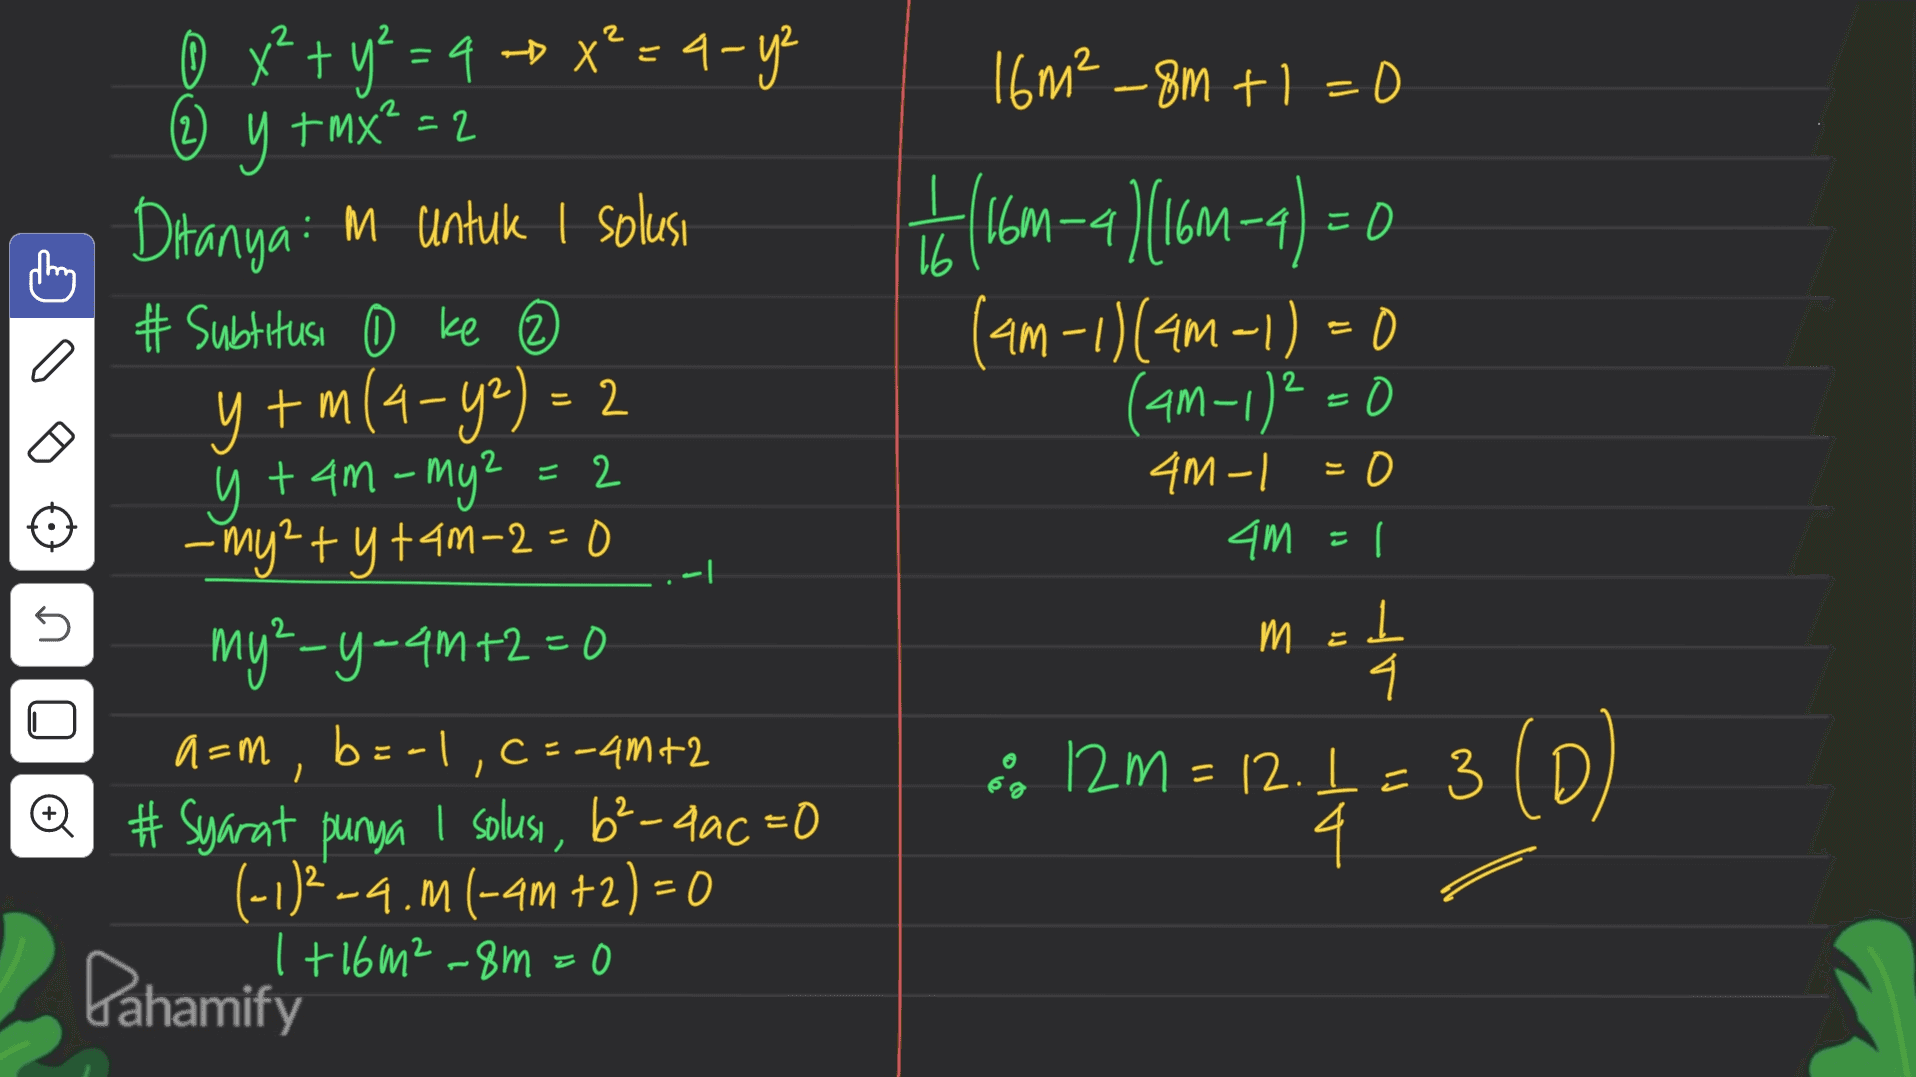 ① x² + y² = 4 → x² = 4 - y²
② y + mx² = 2
Ditanya: m untuk 1 solusi
# Subtitusi ① ke ②
y + m(4 - y²) = 2
y + 4m - my² = 2
-my² + y + 4m - 2 = 0
. -1
my² - y - 4m + 2 = 0
a = m, b = -1, c = -4m + 2
# Syarat punya 1 solusi, b² - 4ac = 0
(-1)² - 4.m(-4m + 2) = 0
1 + 16m² - 8m = 0
16m² - 8m + 1 = 0
1/16 (16m - 4)(16m - 4) = 0
(4m - 1)(4m - 1) = 0
(4m - 1)² = 0
4m - 1 = 0
4m = 1
m = 1/4
∴ 12m = 12 . 1/4 = 3 (D)
Pahamify